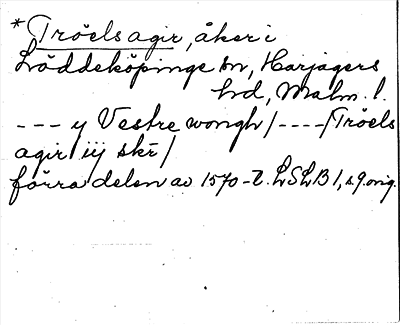 *Tröels agir, åker i
Löddeköpinge sn, Harjagers
hd, Malm. l.
--- y Vestre wongh/----/Tröels
agir/ iij skr/
förra delen av 1570-t. LSLB 1, s. 9. orig.